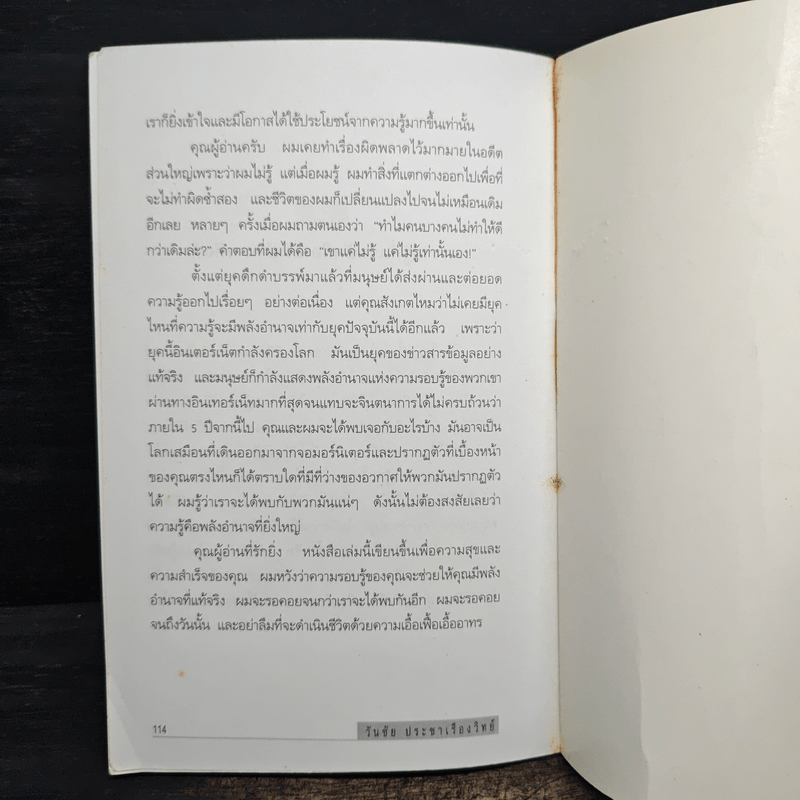 เราก็ยิ่งเข้าใจและมีโอกาสได้ใช้ประโยชน์จากความรู้มากขึ้นเท่านั้น
คุณผู้อ่านครับ ผมเคยทำเรื่องผิดพลาดไว้มากมายในอดีต
ส่วนใหญ่เพราะว่าผมไม่รู้ แต่เมื่อผมรู้ ผมทำสิ่งที่แตกต่างออกไปเพื่อที่
จะไม่ทำผิดซ้ำสอง และชีวิตของผมก็เปลี่ยนแปลงไปจนไม่เหมือนเดิม
อีกเลย หลายๆ ครั้งเมื่อผมถามตนเองว่า "ทำไมคนบางคนไม่ทำให้ดี
กว่าเดิมล่ะ?" คำตอบที่ผมได้คือ "เขาแค่ไม่รู้ แค่ไม่รู้เท่านั้นเอง!"
ตั้งแต่ยุคดึกดำบรรพ์มาแล้วที่มนุษย์ได้ส่งผ่านและต่อยอด
ความรู้ออกไปเรื่อยๆ อย่างต่อเนื่อง แต่คุณสังเกตไหมว่าไม่เคยมียุค
ไหนที่ความรู้จะมีพลังอำนาจเท่ากับยุคปัจจุบันนี้ได้อีกแล้ว เพราะว่า
ยุคนี้อินเตอร์เน็ตกำลังครองโลก มันเป็นยุคของข่าวสารข้อมูลอย่าง
แท้จริง และมนุษย์ก็กำลังแสดงพลังอำนาจแห่งความรอบรู้ของพวกเขา
ผ่านทางอินเทอร์เน็ทมากที่สุดจนแทบจะจินตนาการได้ไม่ครบถ้วนว่า
ภายใน 5 ปีจากนี้ไป คุณและผมจะได้พบเจอกับอะไรบ้าง มันอาจเป็น
โลกเสมือนที่เดินออกมาจากจอมอร์นิเตอร์และปรากฏตัวที่เบื้องหน้า
ของคุณตรงไหนก็ได้ตราบใดที่มีที่ว่างของอวกาศให้พวกมันปรากฏตัว
ได้ ผมรู้ว่าเราจะได้พบกับพวกมันแน่ๆ ดังนั้นไม่ต้องสงสัยเลยว่า
ความรู้คือพลังอำนาจที่ยิ่งใหญ่
คุณผู้อ่านที่รักยิ่ง หนังสือเล่มนี้เขียนขึ้นเพื่อความสุขและ
ความสำเร็จของคุณ ผมหวังว่าความรอบรู้ของคุณจะช่วยให้คุณมีพลัง
อำนาจที่แท้จริง ผมจะรอคอยจนกว่าเราจะได้พบกันอีก ผมจะรอคอย
จนถึงวันนั้น และอย่าลืมที่จะดำเนินชีวิตด้วยความเอื้อเฟื้อเอื้ออาทร
114
วันชัย ประชาเรืองวิทย์